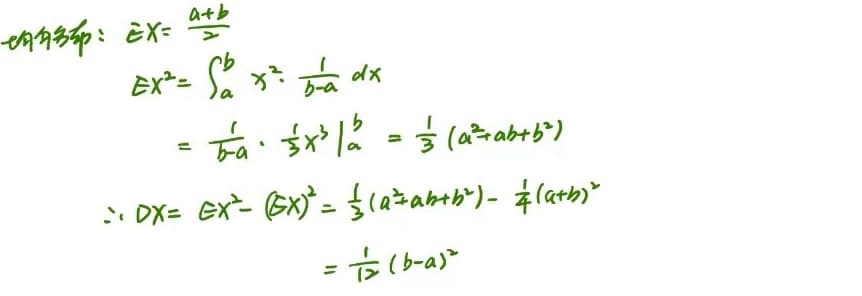 均匀分布: EX = \frac{a+b}{2}
EX² = ∫_a^b x² · \frac{1}{b-a} dx
= \frac{1}{b-a} · \frac{1}{3}x³ |_a^b = \frac{1}{3}(a²+ab+b²)
∴ DX = EX² - (EX)² = \frac{1}{3}(a²+ab+b²) - \frac{1}{4}(a+b)²
= \frac{1}{12}(b-a)²